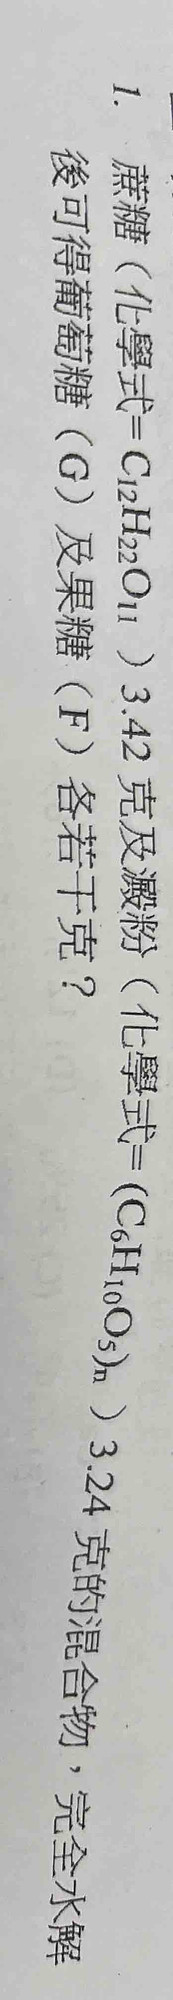 1. 蔗糖（化學式=C₁₂H₂₂O₁₁）3.42 克及澱粉（化學式=(C₆H₁₀O₅)ₙ）3.24 克的混合物，完全水解
後可得葡萄糖（G）及果糖（F）各若干克？